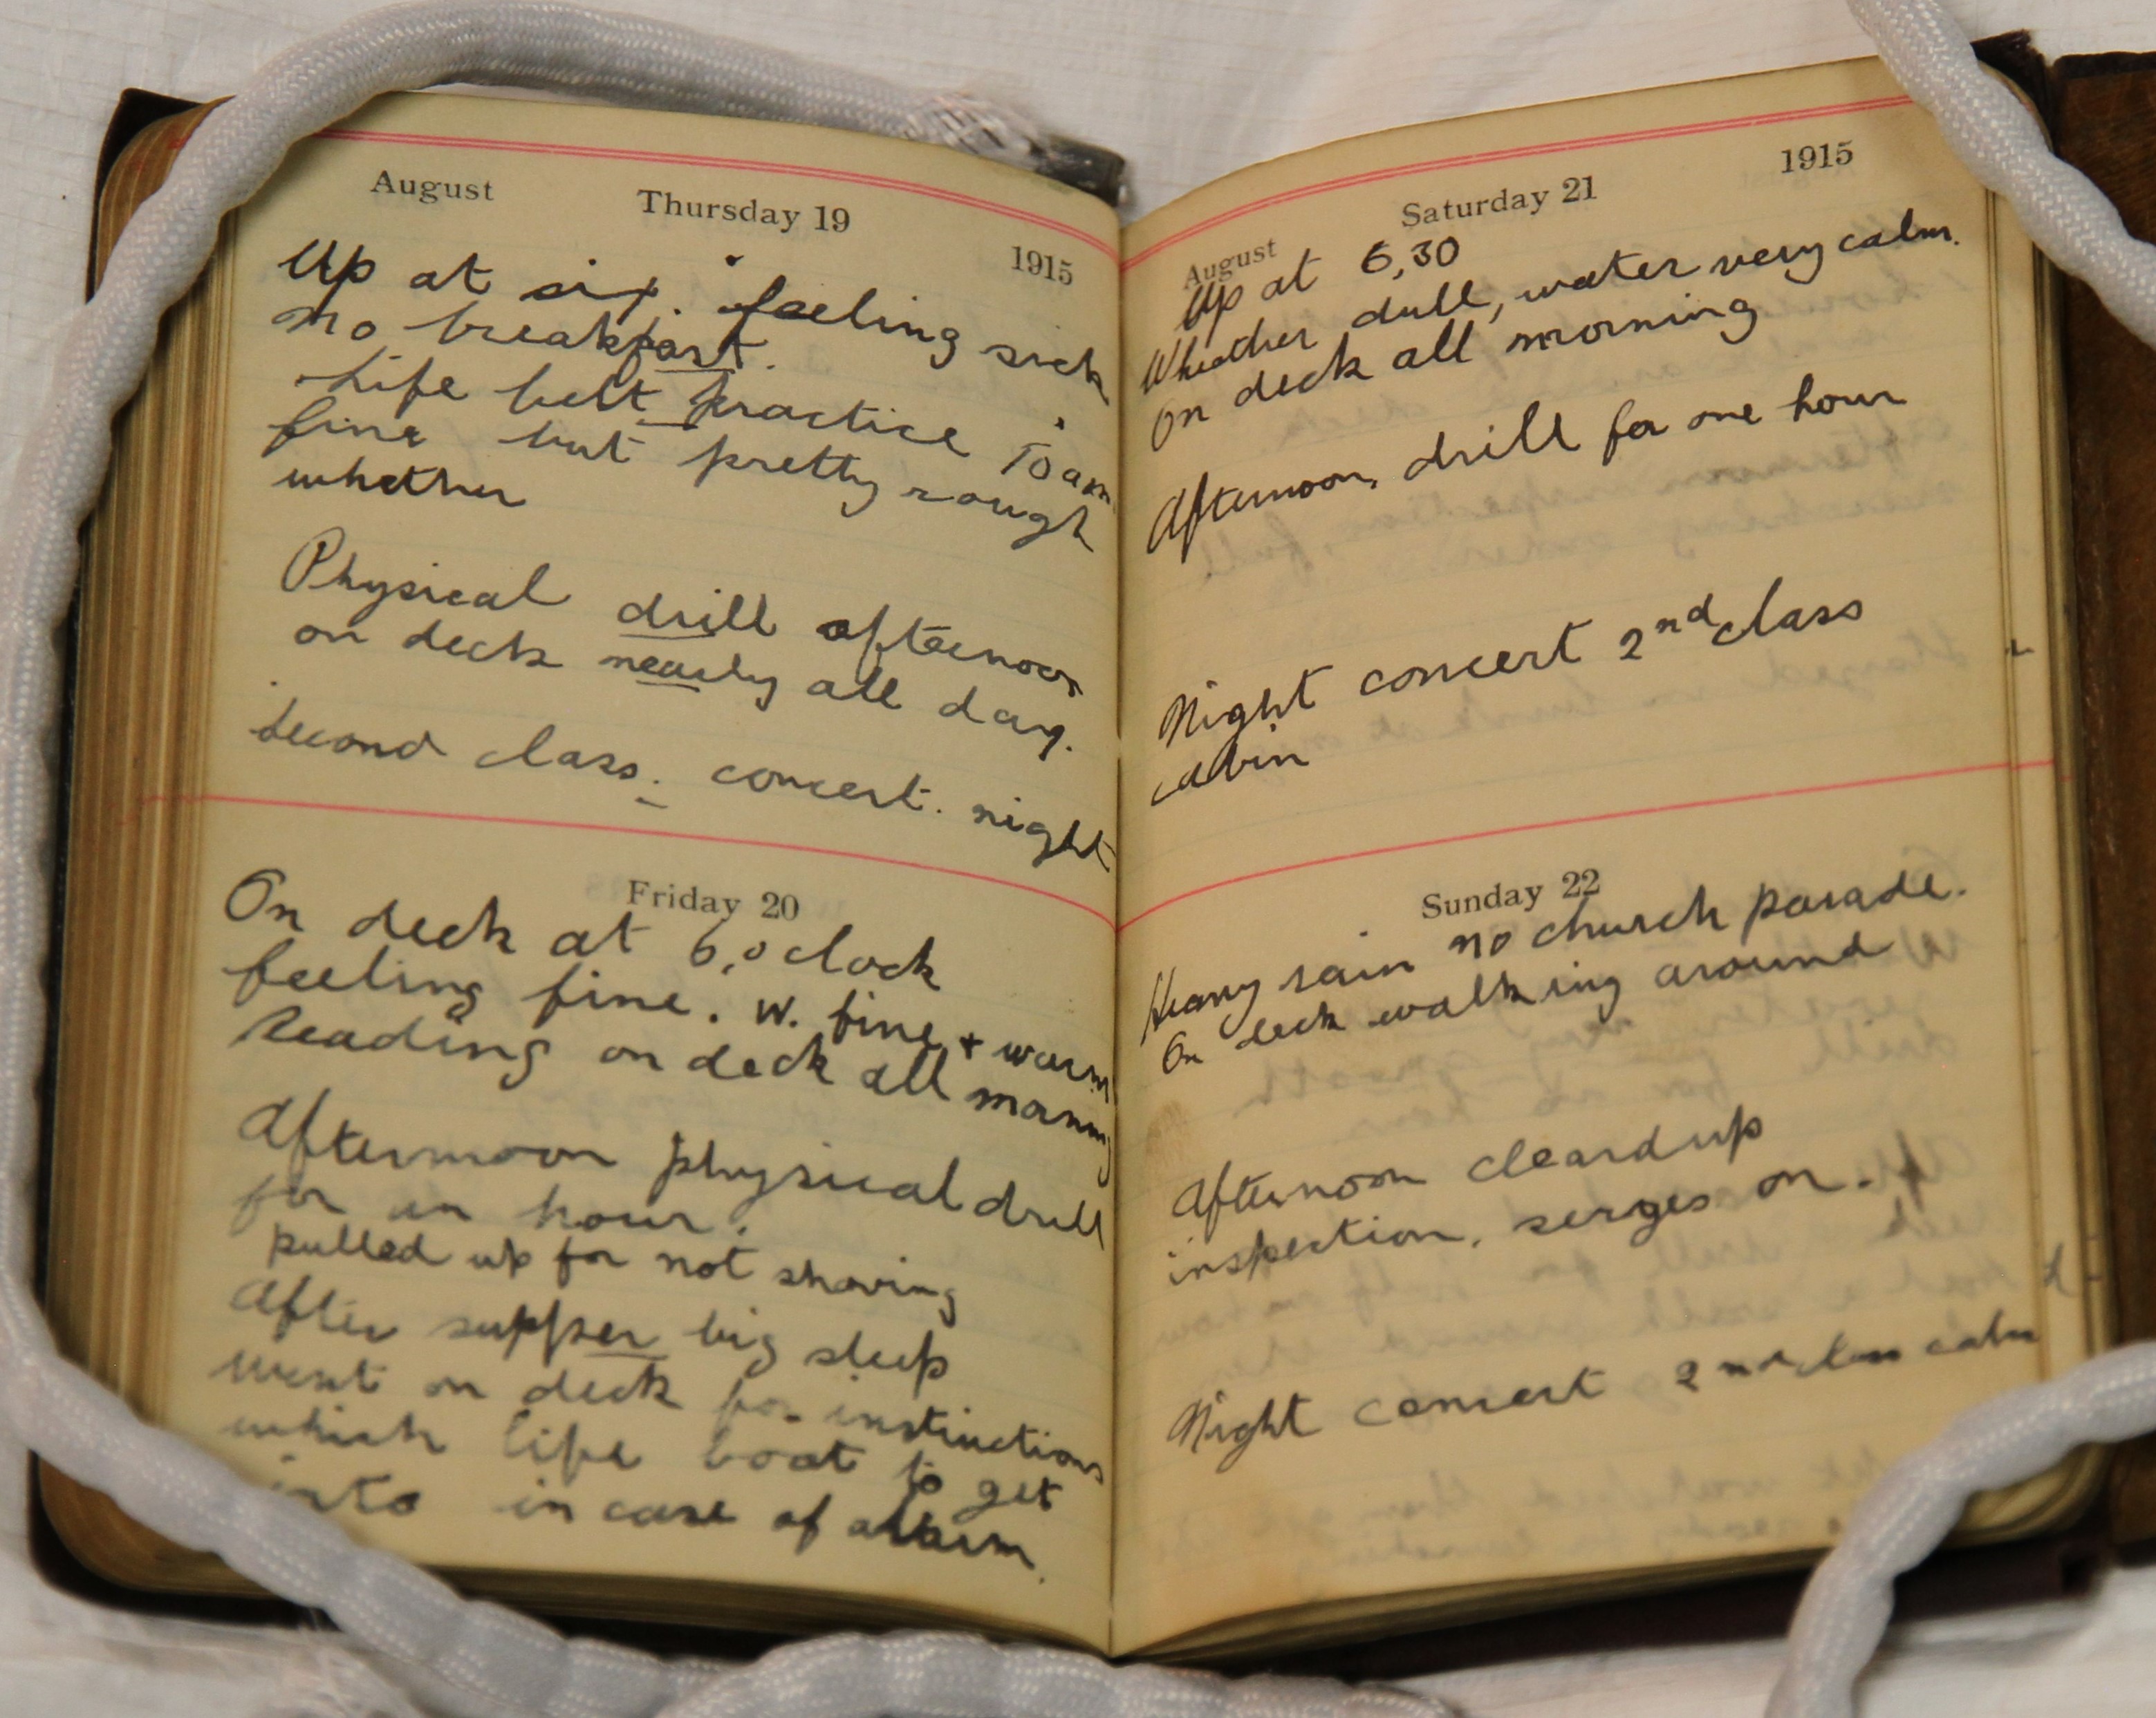 August Thursday 19 1915
Up at six. feeling sick
no breakfast.
Life belt practice 10 am
fine but pretty rough
whether
Physical drill afternoon
on deck nearly all day.
Second class. concert. night
Friday 20
On deck at 6,o clock
feeling fine. W. fine + warm
Reading on deck all morning
Afternoon physical drill
for an hour.
pulled up for not shaving
After supper big sleep
went on deck for instructions
which life boat to get
into in case of alarm.
August Saturday 21 1915
Up at 6,30
Wheather dull, water very calm.
On deck all morning
Afternoon, drill for one hour
Night concert 2nd class
cabin
Sunday 22
Heavy rain no church parade.
On deck walking around
Afternoon cleard up
inspection, serges on.
Night concert 2nd class cabin